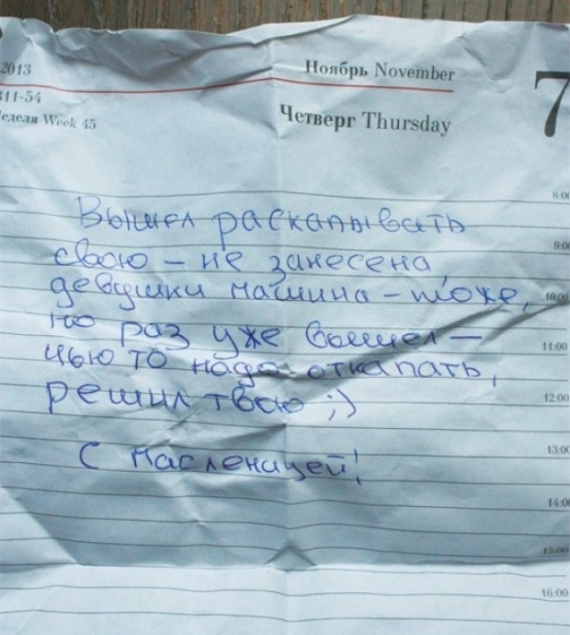 2013
Ноябрь November
7
311-54
еделя Week 45
Четверг Thursday
8:00
Вышел раскапывать
9:00
свою – не занесена,
девушки машина – тоже,
10:00
но раз уже вышел –
11:00
чью то надо откапать,
12:00
решил твою ;)
13:00
С Масленицей!
14:00
15:00
16:00